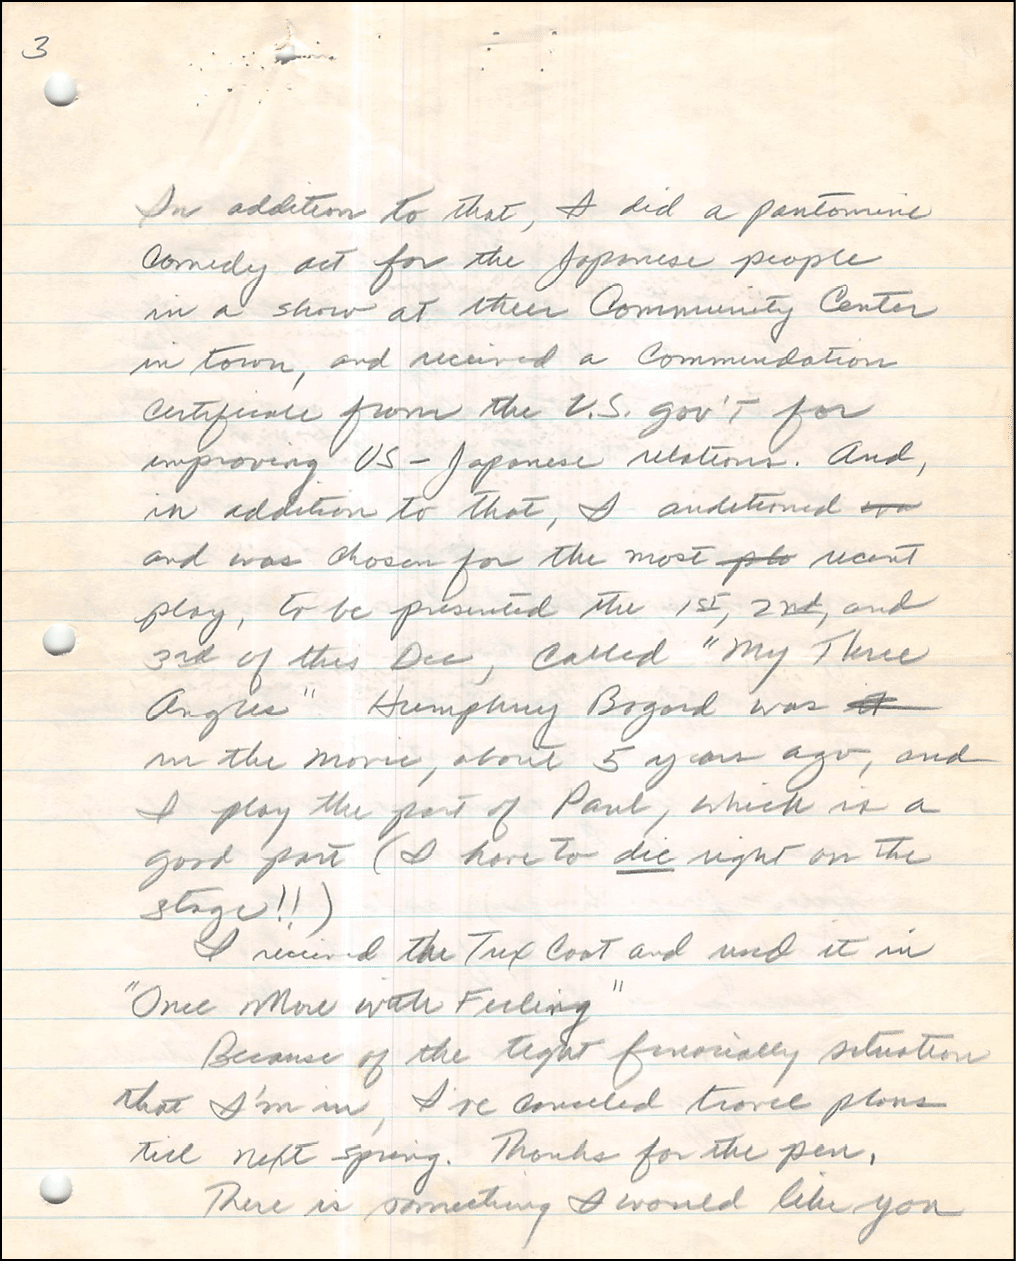 3
In addition to that, I did a pantomine
Comedy act for the Japanese people
in a show at their Community Center
in town, and received a Commendation
certificate from the U.S. gov't for
improving US - Japanese relations. And,
in addition to that, I auditioned
and was chosen for the most recent
play, to be presented the 1st, 2nd, and
3rd of this Dec, Called "My Three
Angles" Humphrey Bogard was
in the movie, about 5 years ago, and
I play the part of Paul, which is a
good part (I have to die right on the
stage!!)
I received the Tux Coat and used it in
"Once More with Feeling"
Because of the tight financially situation
that I'm in, I've canceled travel plans
till next spring. Thanks for the pen.
There is something I would like you